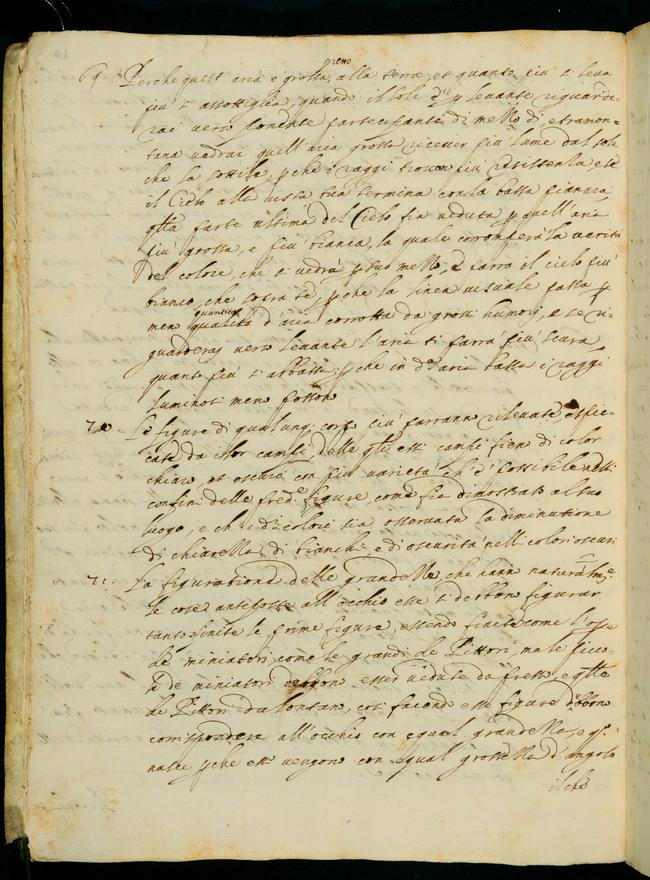 presso
69. Perche quest' aria è grossa, alla terra, et quanto più si leva
più s' assottiglia, quando il sole è p levante riguarde-
rai verso ponente partecipante di mezzo dì, e tramon-
tana vedrai quell' aria grossa ricever più lume dal sole
che la sottile, pche i raggi trovan più resistenza e se
il Cielo alla vista tua termina con la bassa pianura
qlla parte ultima del Cielo fia veduta p quell' aria
più grossa, e più bianca, la quale corromperà la verità
del colore, che si vedrà p suo mezzo, e parrà il cielo più
bianco, che sopra te, pche la linea visuale passa p
quantità
meno qualità d' aria corrotta da grossi humori, e se ri-
guarderai verso levante l' aria ti parrà più scura
quanto più s' abbassa pche in da aria bassa i raggi
luminosi men passono
70. Le figure di qualunq; corpo più parranno rilevate, et spic-
cate da i lor campi, delle qli essi campi sien di color
chiaro, et oscuri con più varietà ch' è possibile nelli
confini delle pred.e figure, come fia dimostrato al suo
luogo, e ch' i d.i colori sia osservata la diminutione
di chiarezza, di bianchi, e di oscurità nell colori oscuri
71. La figuratione delle grandezze, che hanno natural.me
le cose anteposte all' occhio esse si debbon figurar
tanto finite le prime figure, essendo finite come l' ope
de miniatori, come le grandi de Pittori, ma le picco-
le de miniatori debbono esser vedute da presso, e qlle
de Pittori da lontano, così facendo esse figure debbono
corrispondere all' occhio con equal grandezza, e q.o
nasce pche esse vengono con equal grossezza d' angolo
il che